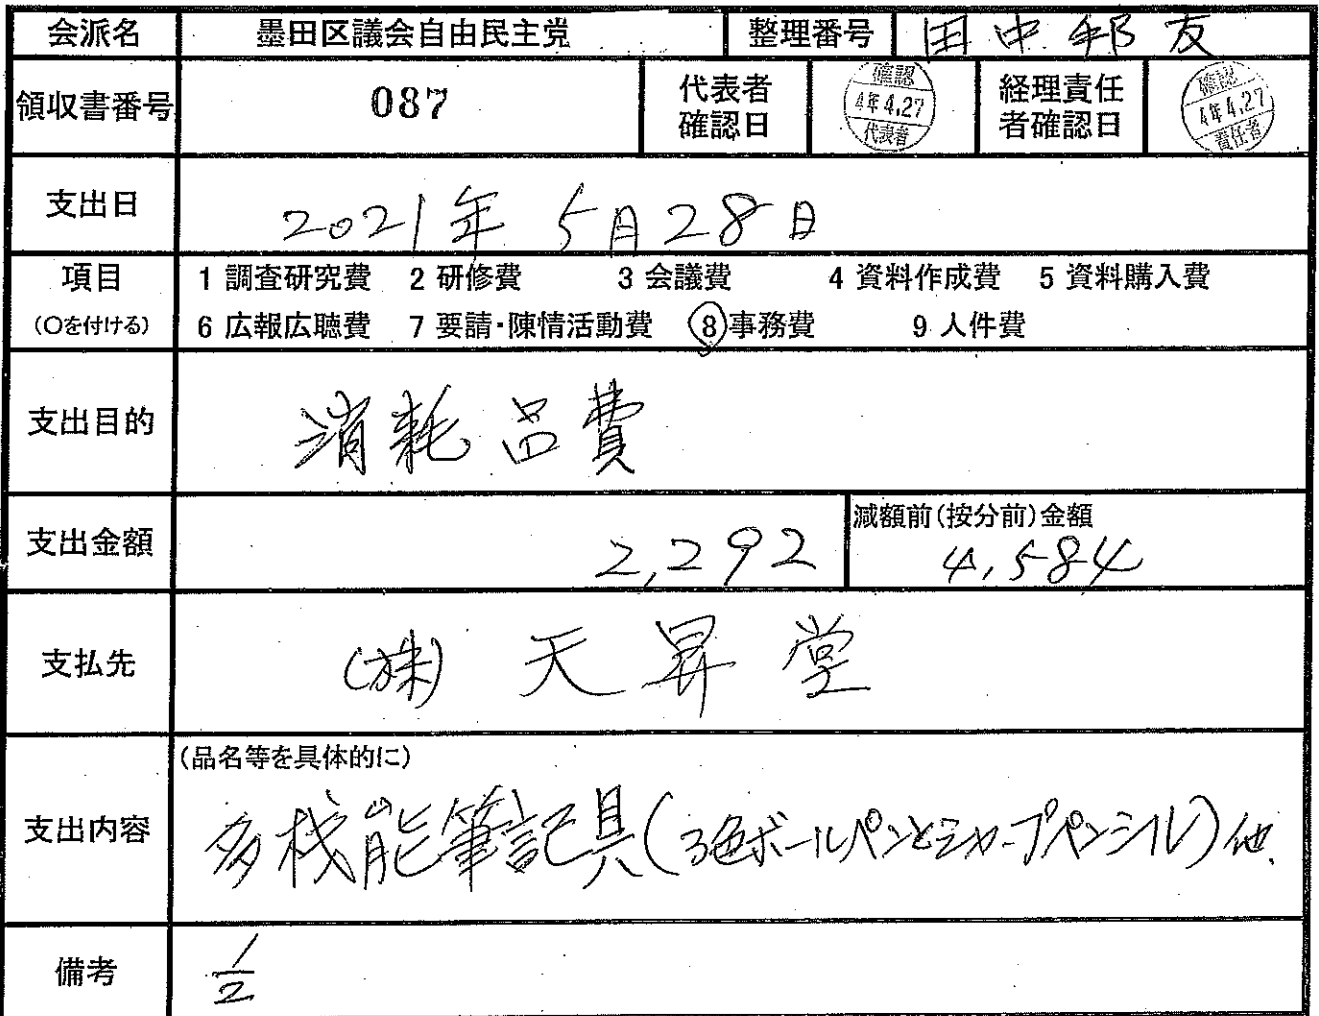 会派名 墨田区議会自由民主党 整理番号 田中邦友
領収書番号 087 代表者確認日 確認 4年4.27 代表者 経理責任者確認日 確認 4年4.27 責任者
支出日 2021年5月28日
項目 1 調査研究費 2 研修費 3 会議費 4 資料作成費 5 資料購入費
(○を付ける) 6 広報広聴費 7 要請・陳情活動費 8 事務費 9 人件費
支出目的 消耗品費
支出金額 2,292 減額前(按分前)金額 4,584
支払先 (株) 天昇堂
(品名等を具体的に)
支出内容 多機能筆記具(3色ボールペンとシャープペンシル)他
備考 1/2